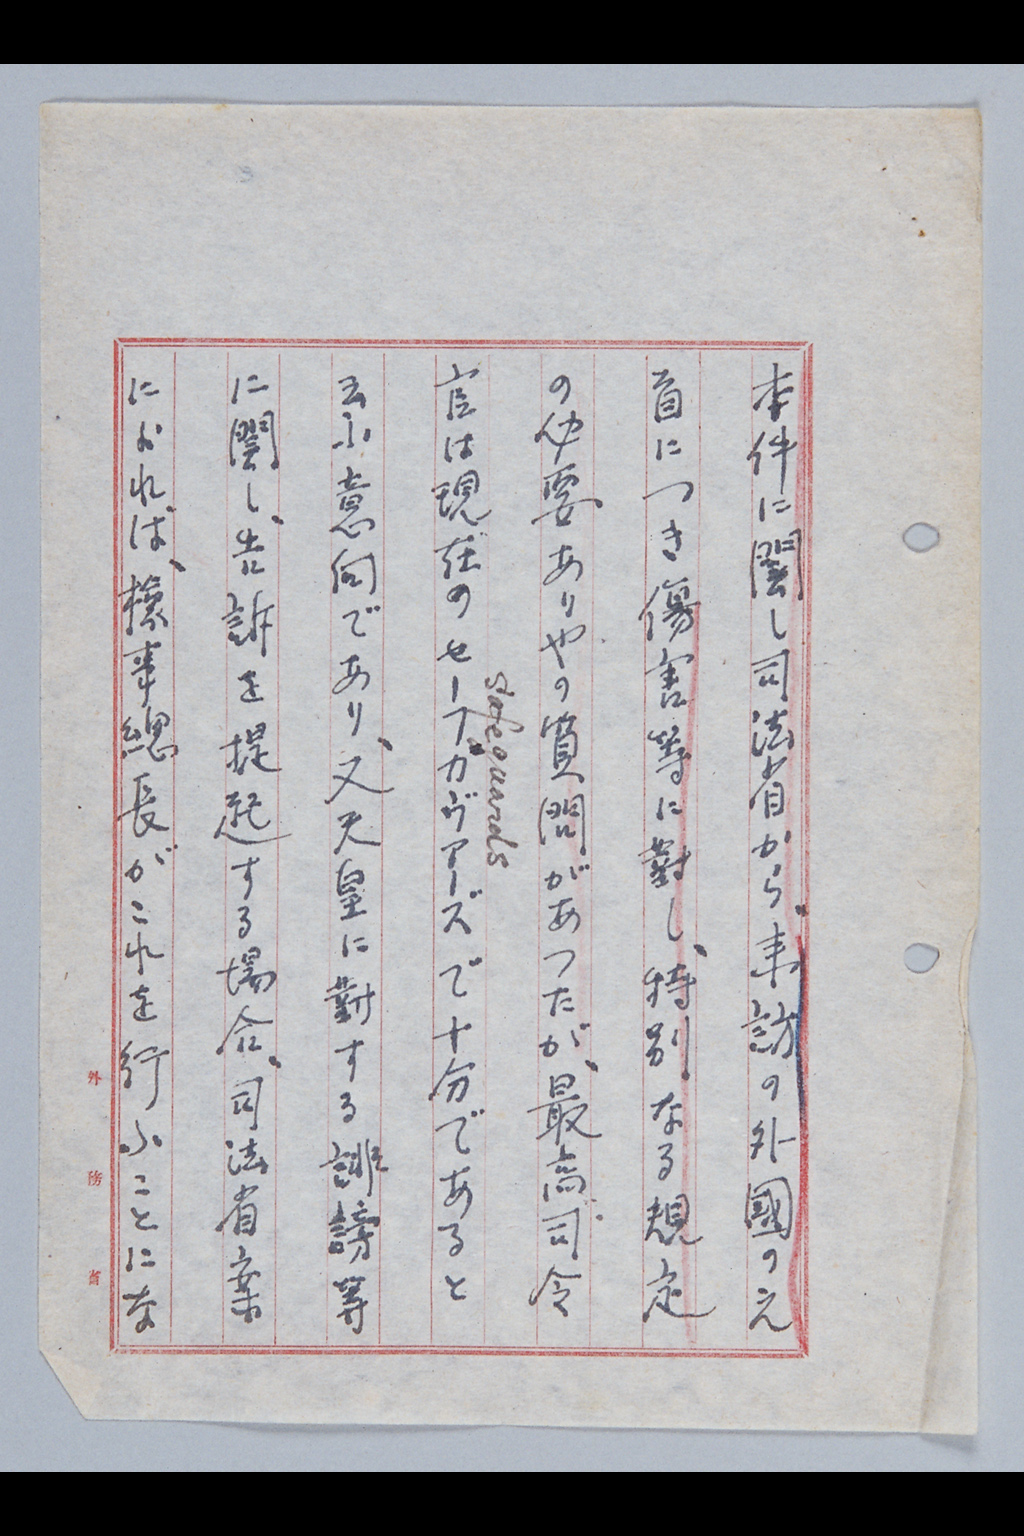 本件に関し司法省から、来訪の外國の元
首につき傷害等に對し、特別なる規定
の必要ありやの質問があつたが、最高司令
官は現在のセーフガヴアーズで十分であると
safeguards
云ふ意向であり、又天皇に對する誹謗等
に関し、告訴を提起する場合、司法省案
によれば、檢事總長がこれを行ふことにな
外務省